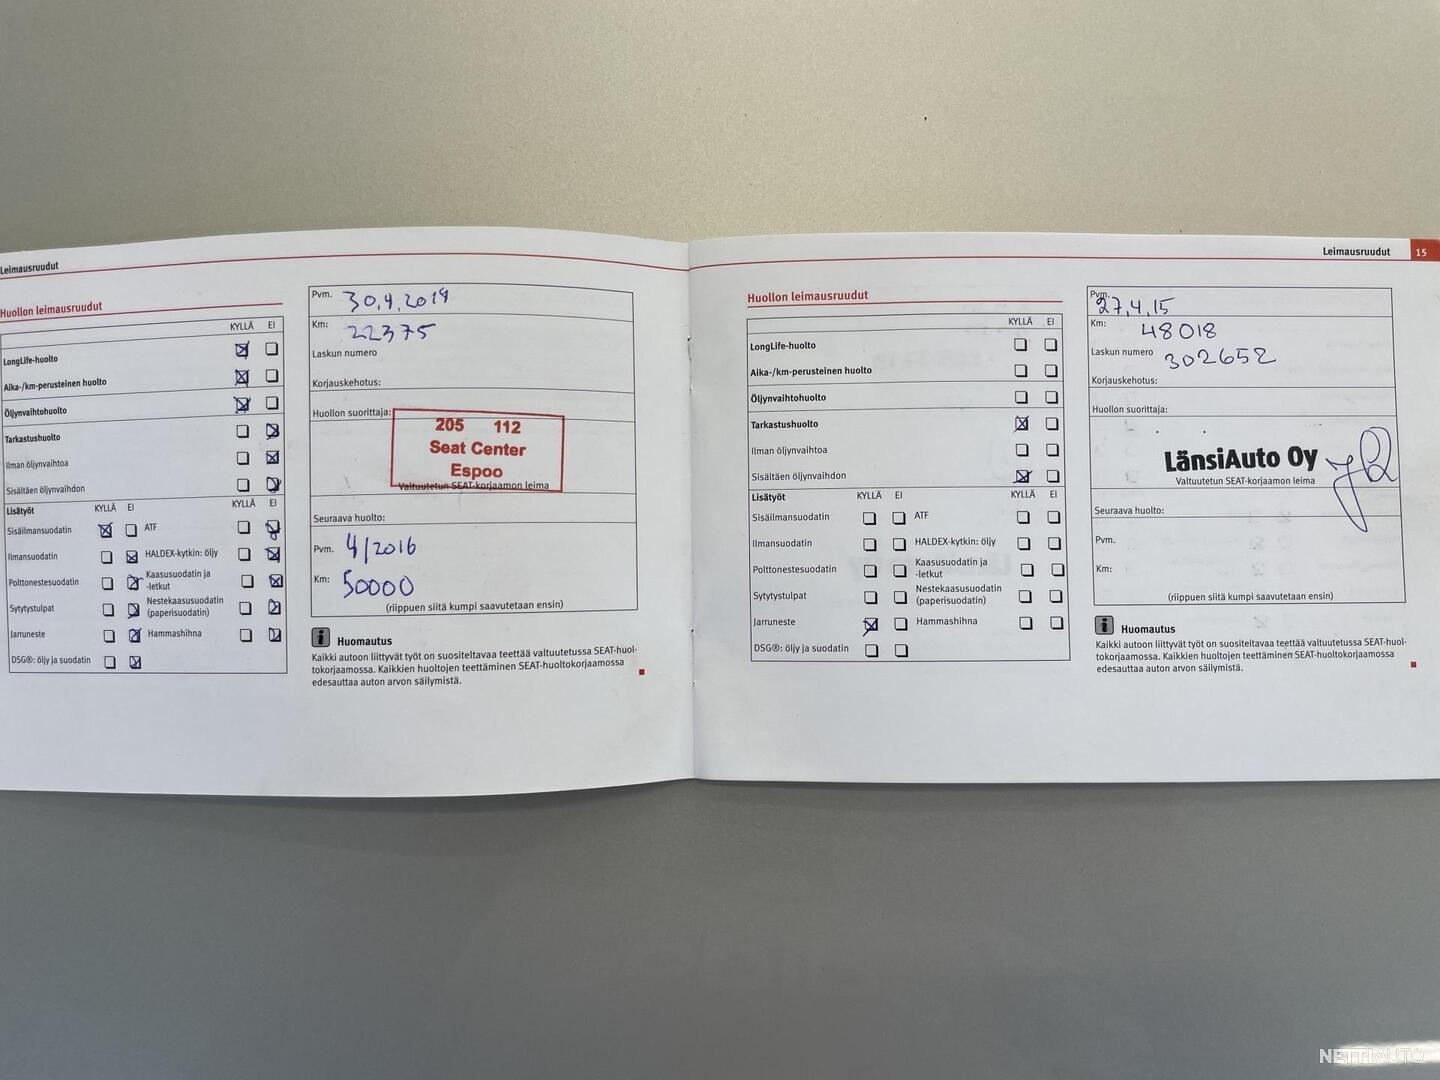 Leimausruudut
Huollon leimausruudut
KYLLÄ EI
LongLife-huolto
Aika-/km-perusteinen huolto
Öljynvaihtohuolto
Tarkastushuolto
Ilman öljynvaihtoa
Sisältäen öljynvaihdon
Lisätyöt KYLLÄ EI KYLLÄ EI
Sisäilmansuodatin ATF
Ilmansuodatin HALDEX-kytkin: öljy
Polttonestesuodatin Kaasusuodatin ja
-letkut
Sytytystulpat Nestekaasusuodatin
(paperisuodatin)
Jarruneste Hammashihna
DSG®: öljy ja suodatin
Pvm. 30.4.2014
Km: 22375
Laskun numero
Korjauskehotus:
Huollon suorittaja:
205 112
Seat Center
Espoo
Valtuutetun SEAT-korjaamon leima
Seuraava huolto:
Pvm. 4/2016
Km: 50000
(riippuen siitä kumpi saavutetaan ensin)
i Huomautus
Kaikki autoon liittyvät työt on suositeltavaa teettää valtuutetussa SEAT-huol-
tokorjaamossa. Kaikkien huoltojen teettäminen SEAT-huoltokorjaamossa
edesauttaa auton arvon säilymistä.
Leimausruudut 15
Huollon leimausruudut
KYLLÄ EI
LongLife-huolto
Aika-/km perusteinen huolto
Öljynvaihtohuolto
Tarkastushuolto
Ilman öljynvaihtoa
Sisältäen öljynvaihdon
Lisätyöt KYLLÄ EI KYLLÄ EI
Sisäilmansuodatin ATF
Ilmansuodatin HALDEX-kytkin: öljy
Polttonestesuodatin Kaasusuodatin ja
-letkut
Sytytystulpat Nestekaasusuodatin
(paperisuodatin)
Jarruneste Hammashihna
DSG®: öljy ja suodatin
Pvm. 27.4.15
Km: 48018
Laskun numero 302652
Korjauskehotus:
Huollon suorittaja:
LänsiAuto Oy
Valtuutetun SEAT-korjaamon leima
Seuraava huolto:
Pvm.
Km:
(riippuen siitä kumpi saavutetaan ensin)
i Huomautus
Kaikki autoon liittyvät työt on suositeltavaa teettää valtuutetussa SEAT-huol-
tokorjaamossa. Kaikkien huoltojen teettäminen SEAT-huoltokorjaamossa
edesauttaa auton arvon säilymistä.
NETTIAUTO